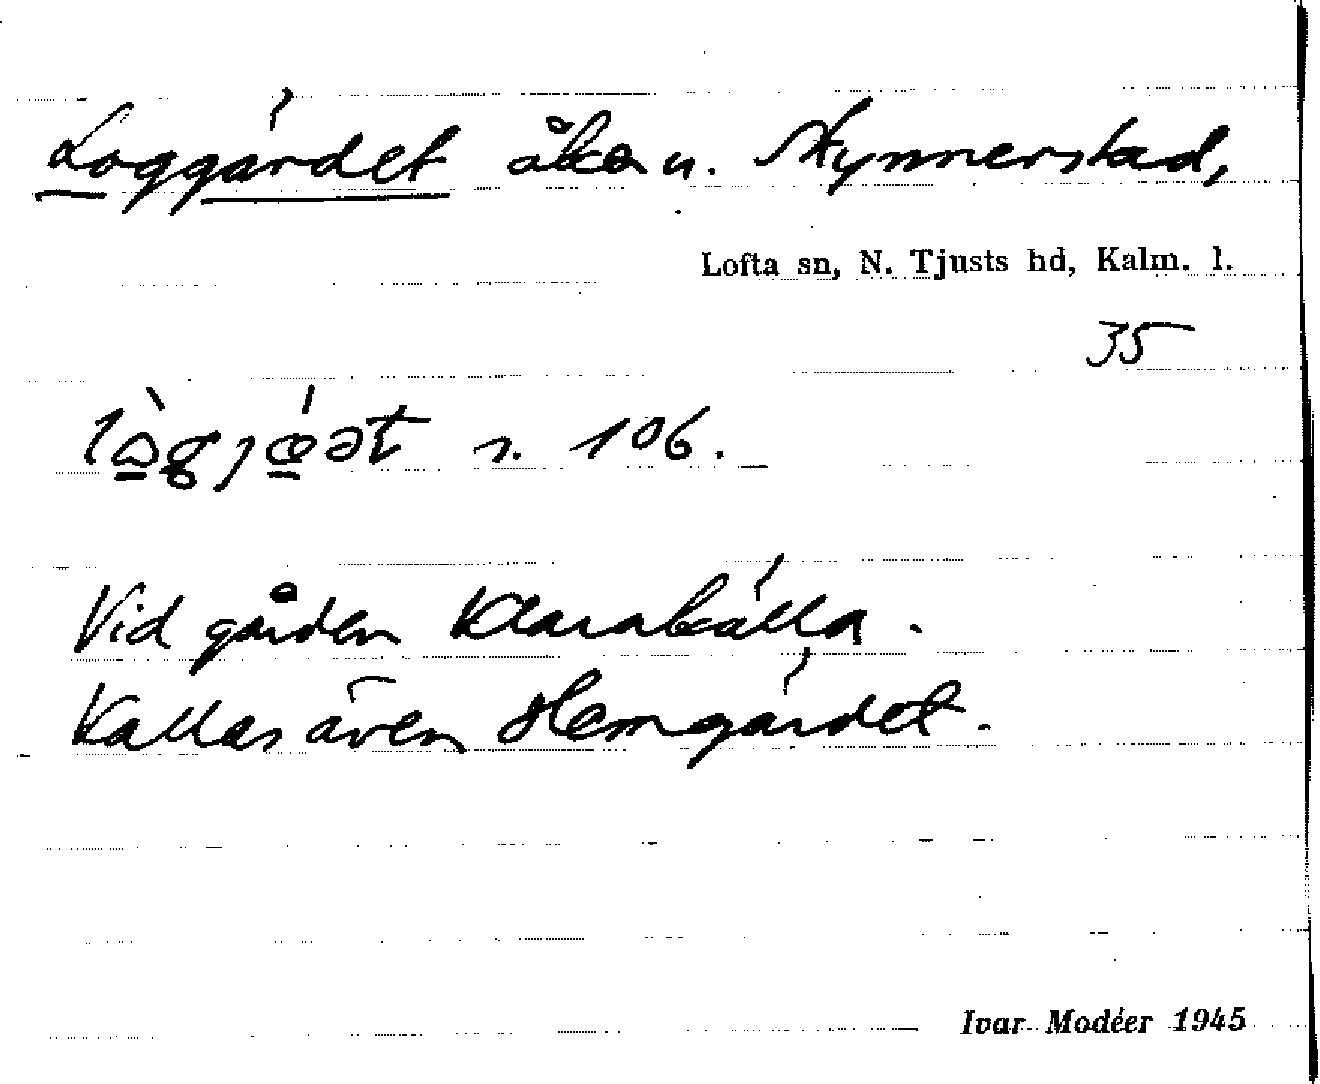 Loggärdet åker u. Nynnerstad,
Lofta sn, N. Tjusts hd, Kalm. l.
35
s. 106.
Vid gården Klarakälla.
Kallas även Hemgärdet.
Ivar Modéer 1945